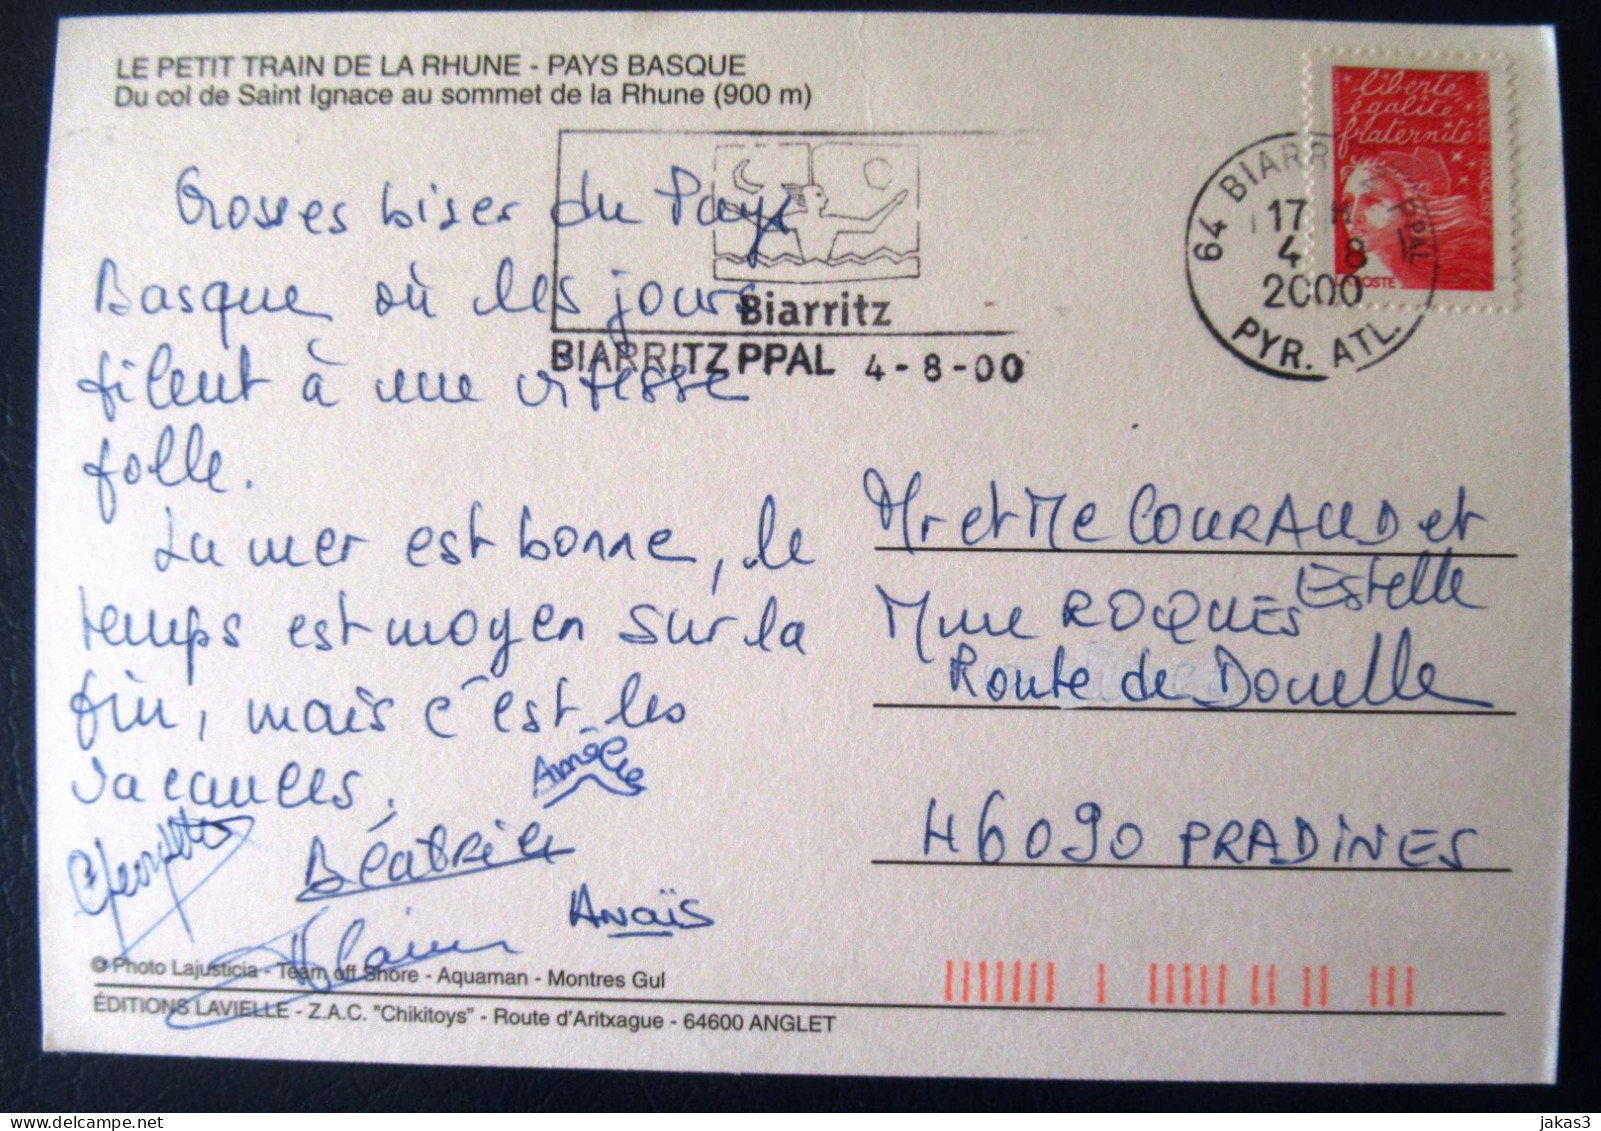 LE PETIT TRAIN DE LA RHUNE - PAYS BASQUE
Du col de Saint Ignace au sommet de la Rhune (900 m)
Grosses bises du Pays
Basque où les jours
filent à une vitesse
folle.
La mer est bonne, le
temps est moyen sur la
fin, mais c'est les
vacances.
Amélie
Béatrice
Anaïs
Alain
Biarritz
BIARRITZ PPAL 4-8-00
64 BIARRITZ PPAL
17 H
4 8
2000
PYR. ATL.
liberté
égalité
fraternité
RÉPUBLIQUE FRANÇAISE
LA POSTE
Mr et Me COURAUD et
Mme ROQUES Estelle
Route de Douelle
46090 PRADINES
© Photo Lajusticia - Team off Shore - Aquaman - Montres Gul
ÉDITIONS LAVIELLE - Z.A.C. "Chikitoys" - Route d'Aritxague - 64600 ANGLET
jakas3